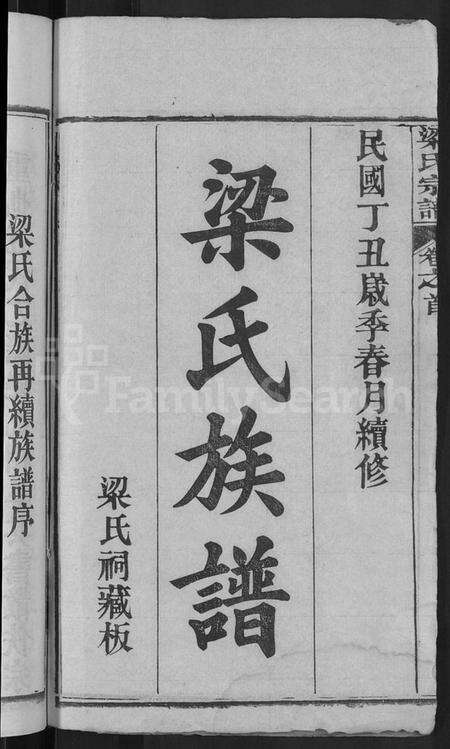 梁氏宗譜 卷之首
民國丁丑歲季春月續修
梁氏族譜
梁氏祠藏板
梁氏合族再續族譜序
FamilySearch